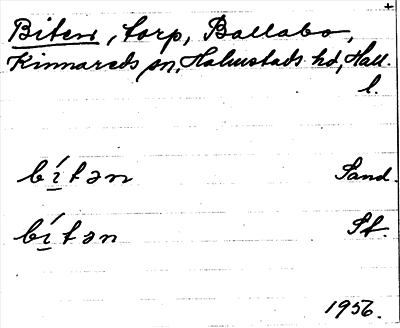 Biten, torp, Ballabo,
Kinnareds sn, Halmstads hd, Hall.
l.
bítən Sand.
bítən St.
1956.